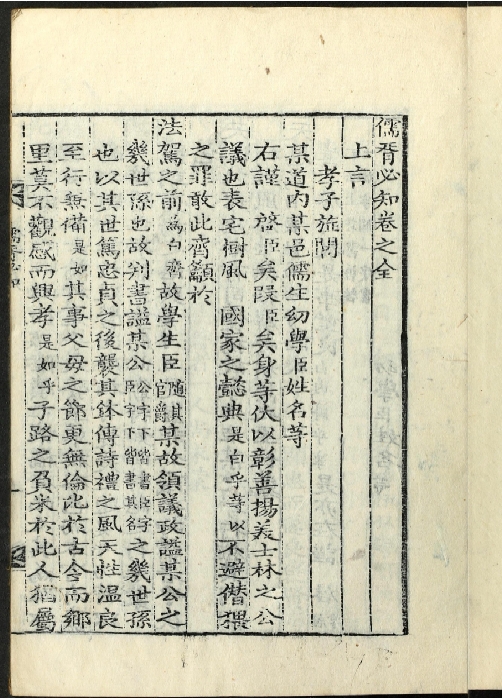 儒胥必知卷之全
上言
孝子旌閭
某道內某邑儒生幼學臣姓名等
右謹啓臣矣段臣矣身等伏以彰善揚羙士林之公
議也表宅樹風 國家之懿典是白乎等以不避僭猥
之罪敢此齊籲於
法駕之前爲白齊故學生臣隨其官爵某故領議政諡某公之
幾世孫也故判書諡某公公字下皆書臣字公字下皆書其名之幾世孫
也以其世篤忠貞之後襲其鉢傳詩禮之風天性溫良
至行無備是如其事父母之節更無倫比於古今而鄕
里莫不觀感而興孝是如乎子路之負米於此人猶屬